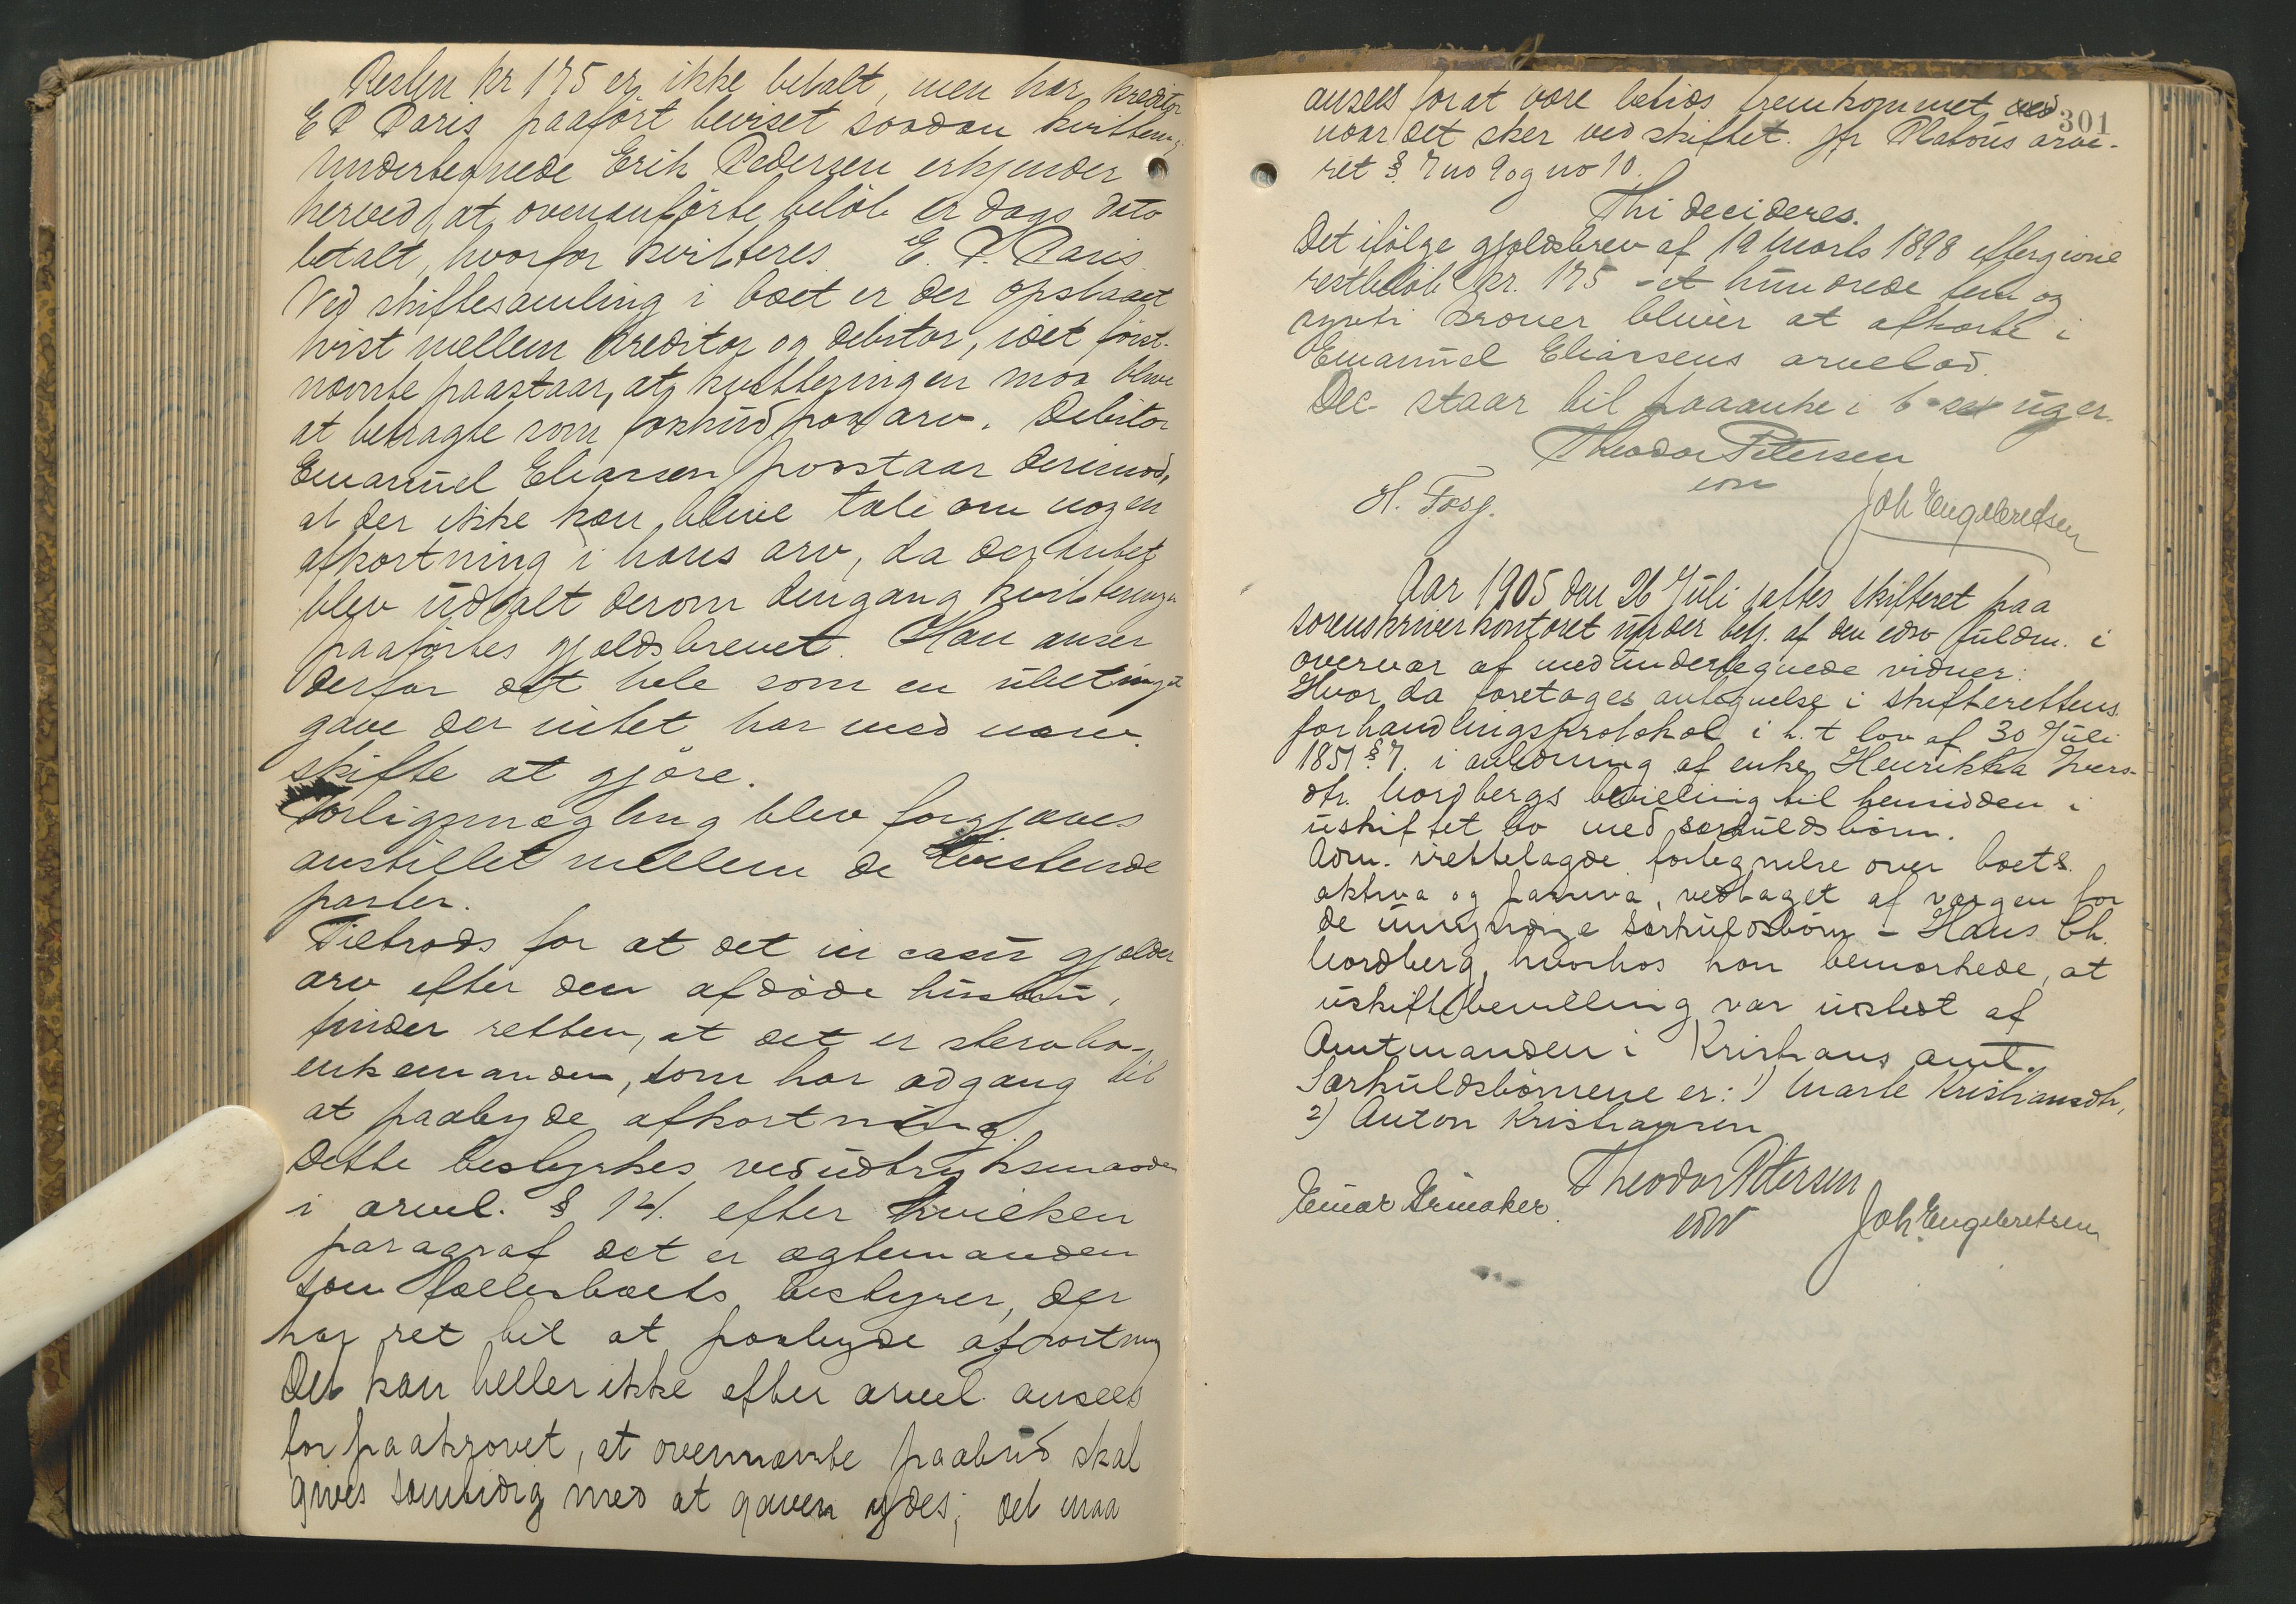 Resten kr 175 er ikke betalt, men har kreditor
E P Paris paaført beviset saadan kvittering:
Undertegnede Erik Pedersen erkjender
herved, at ovenanførte beløb er dags dato
betalt, hvorfor kvitteres. E. P. Paris.
Ved skiftesamling i boet er der opstaaet
tvist mellem kreditor og debitor, idet først-
nævnte paastaar, at kvitteringen maa blive
at betragte som forskud paa arv. Debitor
Emanuel Eliassen paastaar derimod,
at der ikke kan blive tale om nogen
afkortning i hans arv, da der intet
blev udtalt derom dengang kvitteringen
paaførtes gjældsbrevet. Han anser
derfor det hele som en ubetinget
gave der intet har med nærv.
skifte at gjøre.
Forligsmægling blev forgjæves
anstillet mellem de tvistende
parter.
Tiltrods for at det in casu gjælder
arv efter den afdøde hustru,
finder retten, at det er stervbo-
enkemanden, som har adgang til
at paabyde afkortning.
Dette bestyrkes ved udtryksmaaden
i arvel. § 14. efter hvilken
paragraf det er ægtemanden
som fællesboets bestyrer, der
har ret til at paabyde afkortning
Det kan heller ikke efter arvel. ansees
for paakrævet, at ovennævnte paabud skal
gives samtidig med at gaven ydes; det maa
301
ansees for at være betids fremkommet
naar det sker ved skiftet. jfr Platous arve-
ret § 7 no 9 og no 10.
Thi decideres.
Det ifølge gjældsbrev af 19 Marts 1898 eftergivne
restbeløb kr. 175 - et hundrede fem og
sytti kroner bliver at afkorte i
Emanuel Eliassens arvelod.
Dec. staar til paaanke i 6 - sex uger.
Theodor Petersen
edsv
H. Fosg. Joh Engebretsen
Aar 1905 den 26 Juli sattes skifteret paa
sorenskriverkontoret under best. af den edsv fuldm. i
overvær af medundertegnede vidner:
Hvor da foretoges antegnelse i skifterettens
forhandlingsprotokol i h. t lov af 30 Juli
1851 § 7. i anledning af enke Henrikka Ivers-
dtr. Nordbergs bevilling til hensidden i
uskiftet bo med særkuldsbørn.
Adm. irettelagde fortegnelse over boets
aktiva og passiva, vedtaget af værgen for
de umyndige særkuldsbørn - Hans Ch.
Nordberg, hvorhos han bemærkede, at
uskiftebevilling var udstedt af
Amtmanden i Kristians amt.
Særkuldsbørnene er: 1) Marte Kristiansdtr,
2) Anton Kristiansen
Theodor Petersen
edsv
Einar Joh. Engebretsen